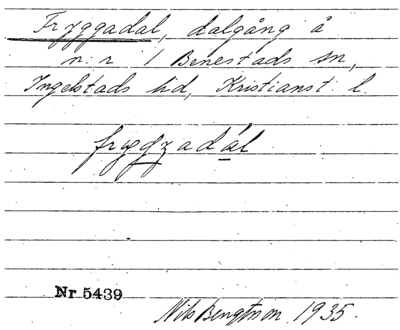 Fryggadal, dalgång å
n:r 1 Benestads sn,
Ingelstads hd, Kristianst. l.
Nr 5439
Nils Bengtson 1935.